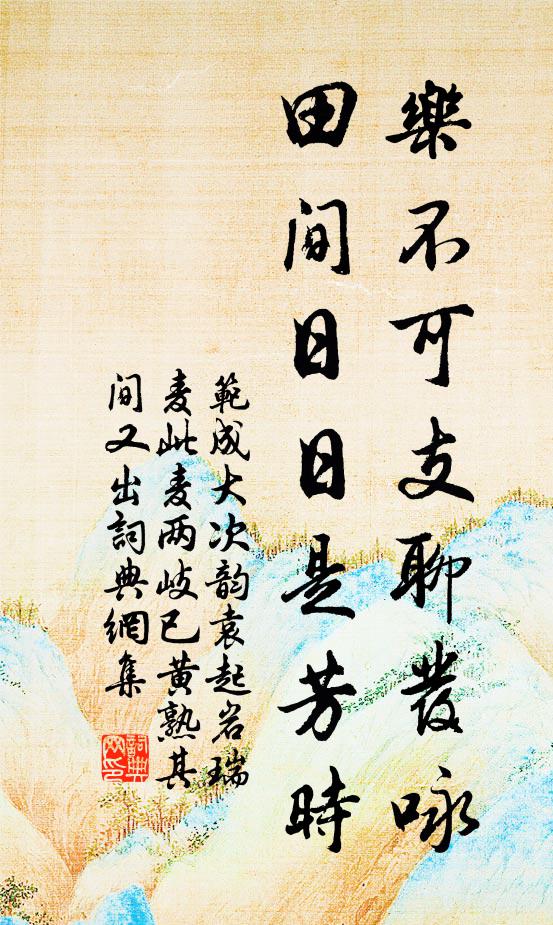 樂不可支聊發咏
田间日日是芳時
範成大次韵袁起岩瑞
麦此麦两岐已黄熟其
间又出詞典網集
詞典网印